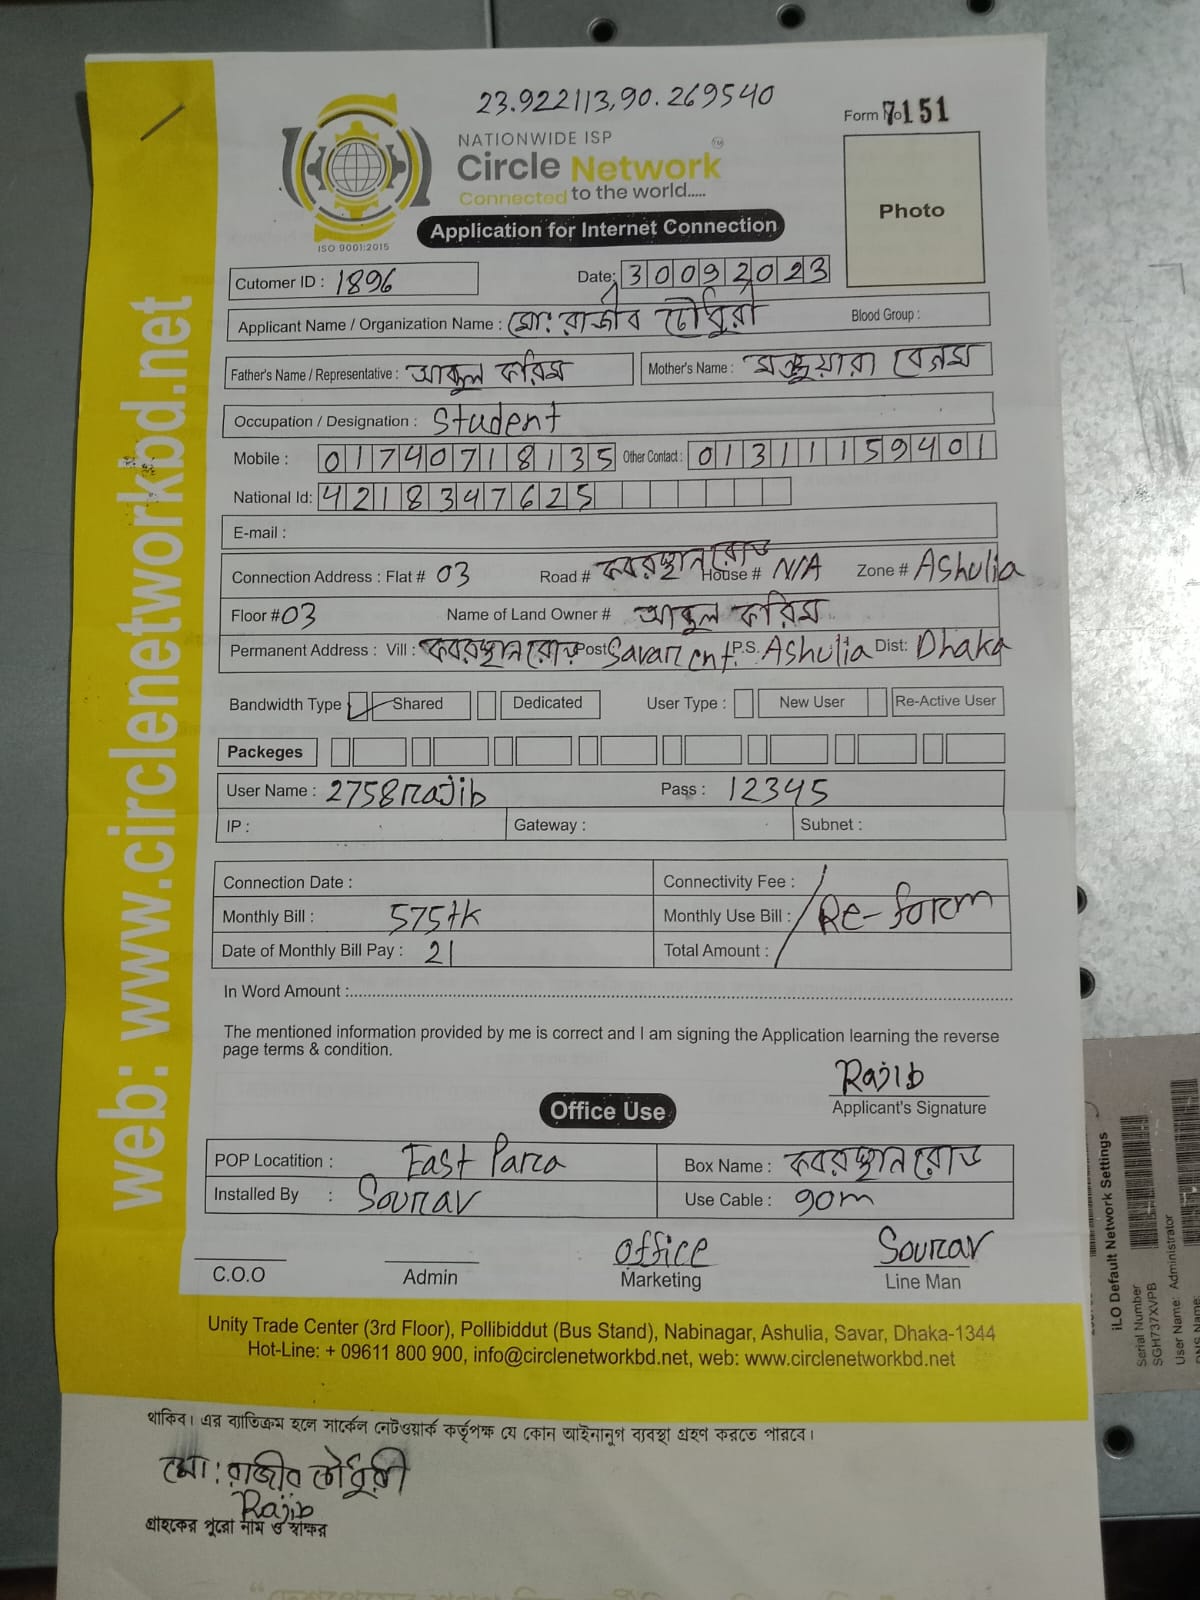 23.922113,90.269540
Form No 7151
NATIONWIDE ISP
Circle Network TM
Connected to the world.....
ISO 9001:2015
Application for Internet Connection
Photo
Cutomer ID : 1896
Date: 30092023
Applicant Name / Organization Name : মো: রাজীব চৌধুরী Blood Group :
Father's Name / Representative : আব্দুল করিম Mother's Name : মঞ্জুয়ারা বেগম
Occupation / Designation : Student
Mobile : 01740718135 Other Contact : 01311159401
National Id: 4218347625
E-mail :
Connection Address : Flat # 03 Road # কবরস্থান রোড House # N/A Zone # Ashulia
Floor # 03 Name of Land Owner # আব্দুল করিম
Permanent Address : Vill : কবরস্থান রোড Post Savar cnt P.S. Ashulia Dist: Dhaka
Bandwidth Type Shared Dedicated User Type : New User Re-Active User
Packeges
User Name : 2758rajib Pass : 12345
IP : Gateway : Subnet :
Connection Date : Connectivity Fee :
Monthly Bill : 575tk Monthly Use Bill : Re-form
Date of Monthly Bill Pay : 21 Total Amount :
In Word Amount :
The mentioned information provided by me is correct and I am signing the Application learning the reverse
page terms & condition.
Rajib
Applicant's Signature
Office Use
POP Locatition : East Para Box Name : কবরস্থান রোড
Installed By : Sourav Use Cable : 90m
Office Sourav
C.O.O Admin Marketing Line Man
Unity Trade Center (3rd Floor), Pollibiddut (Bus Stand), Nabinagar, Ashulia, Savar, Dhaka-1344
Hot-Line: + 09611 800 900, info@circlenetworkbd.net, web: www.circlenetworkbd.net
web: www.circlenetworkbd.net
থাকিব। এর ব্যতিক্রম হলে সার্কেল নেটওয়ার্ক কর্তৃপক্ষ যে কোন আইনানুগ ব্যবস্থা গ্রহণ করতে পারবে।
মো: রাজীব চৌধুরী
Rajib
গ্রাহকের পুরো নাম ও স্বাক্ষর
iLO Default Network Settings
Serial Number
SGH737XVPB
User Name: Administrator